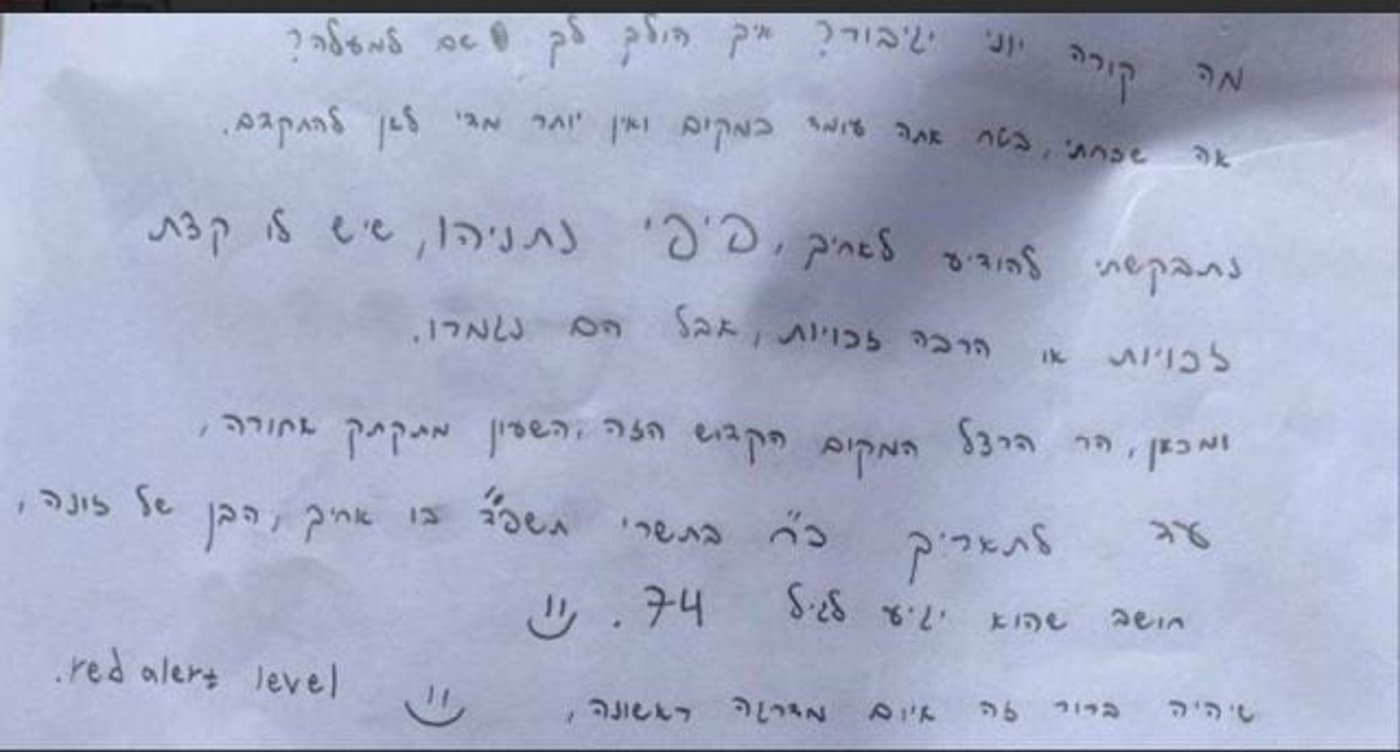 מה קורה יוני יגיבור? איך הולך לך שם למעלה?
אה שכחתי, בטח אתה עומד במקום ואין יותר מדי לאן להתקדם.
נתבקשתי להודיע לאחיך, פיפי נתניהו, שיש לו קצת
זכויות או הרבה זכויות, אבל הם נגמרו.
ומכאן, הר הרצל המקום הקדוש הזה, השעון מתקתק אחורה,
עד לתאריך כ"ח בתשרי תשפ"ד בו אחיך, הבן של זונה,
חושב שהוא יגיע לגיל 74.
שיהיה ברור זה איום מדרגה ראשונה, red alert level.